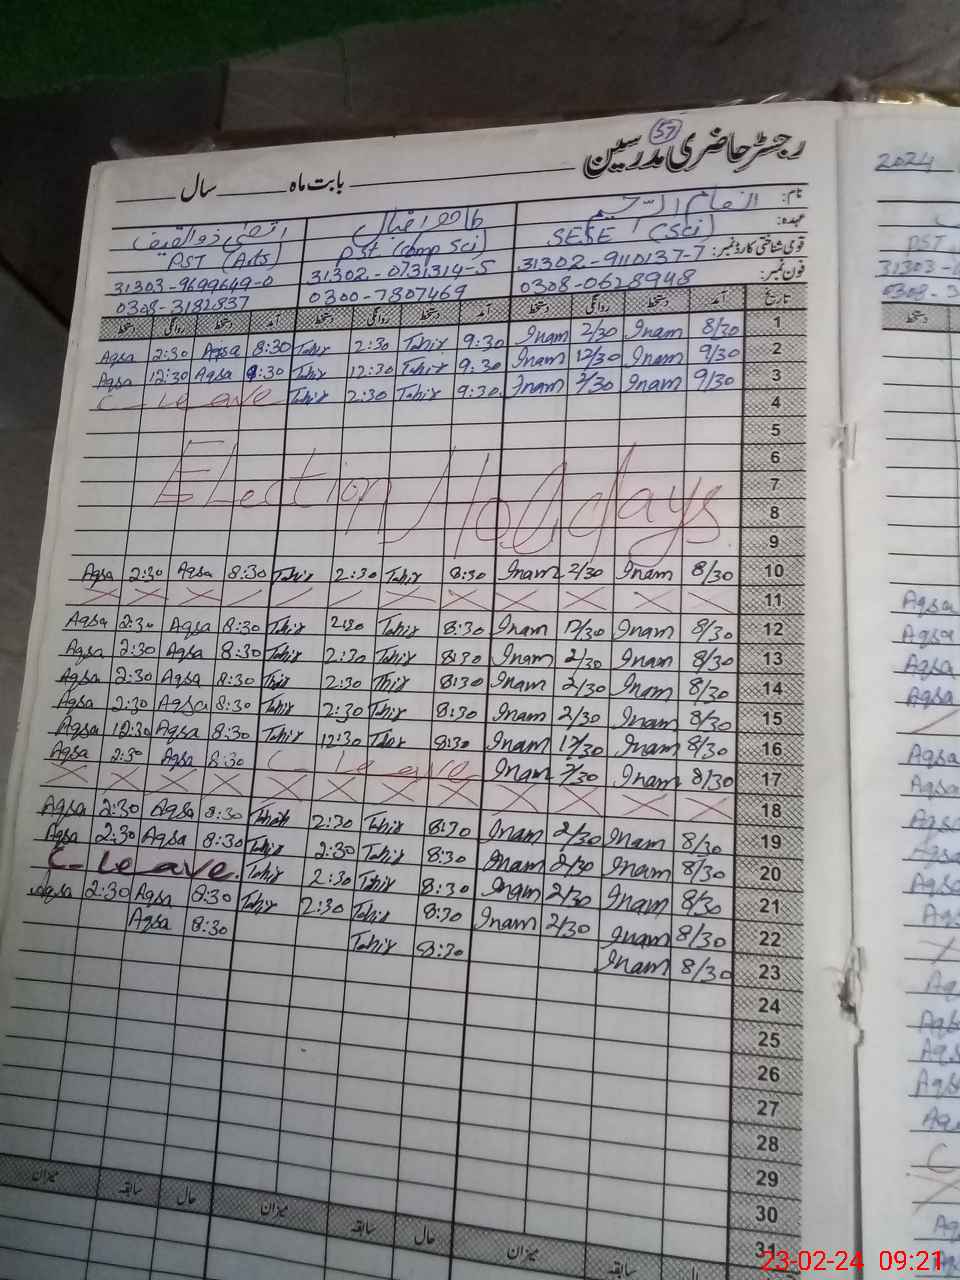 57
رجسٹر حاضری مدرسین
بابت ماہ سال
نام: انعام الرحیم طاہر اقبال
عہدہ: SESE (Sci) PST (Comp Sci) PST (Arts)
قومی شناختی کارڈ نمبر: 31302-9110137-7 31302-0731314-5 31303-9699649-0
فون نمبر: 0308-0628948 0300-7807469 0308-3182837
تاریخ آمد دستخط روانگی دستخط آمد دستخط روانگی دستخط آمد دستخط روانگی دستخط
Aqsa 2:30 Aqsa 8:30 Tahir 2:30 Tahir 9:30 Inam 2/30 Inam 8/30 1
Aqsa 12:30 Aqsa 9:30 Tahir 12:30 Tahir 9:30 Inam 12/30 Inam 9/30 2
C-leave Tahir 2:30 Tahir 9:30 Inam 2/30 Inam 9/30 3
4
5
6
Election Holidays 7
8
9
Aqsa 2:30 Aqsa 8:30 Tahir 2:30 Tahir 8:30 Inam 2/30 Inam 8/30 10
11
Aqsa 2:30 Aqsa 8:30 Tahir 2:30 Tahir 8:30 Inam Inam 8/30 12
Aqsa 2:30 Aqsa 8:30 Tahir 2:30 Tahir 8:30 Inam 2/30 Inam 8/30 13
Aqsa 2:30 Aqsa 8:30 Tahir 2:30 Tahir 8:30 Inam 2/30 Inam 8/30 14
Aqsa 2:30 Aqsa 8:30 Tahir 2:30 Tahir 8:30 Inam 2/30 Inam 8/30 15
Aqsa 12:30 Aqsa 8:30 Tahir 12:30 Tahir 8:30 Inam 12/30 Inam 8/30 16
Aqsa 2:30 Aqsa 8:30 C-leave Inam 2/30 Inam 8/30 17
18
Aqsa 2:30 Aqsa 8:30 Tahir 2:30 Tahir 8:30 Inam 2/30 Inam 8/30 19
Aqsa 2:30 Aqsa 8:30 Tahir 2:30 Tahir 8:30 Inam 2/30 Inam 8/30 20
C-leave Tahir 2:30 Tahir 8:30 Inam 2/30 Inam 8/30 21
Aqsa 2:30 Aqsa 8:30 Tahir 2:30 Tahir 8:30 Inam 2/30 Inam 8/30 22
Aqsa 8:30 Tahir 8:30 Inam 8/30 23
24
25
26
27
28
29
30
31
میزان سابقہ حال میزان سابقہ حال میزان سابقہ حال
2024
23-02-24 09:21